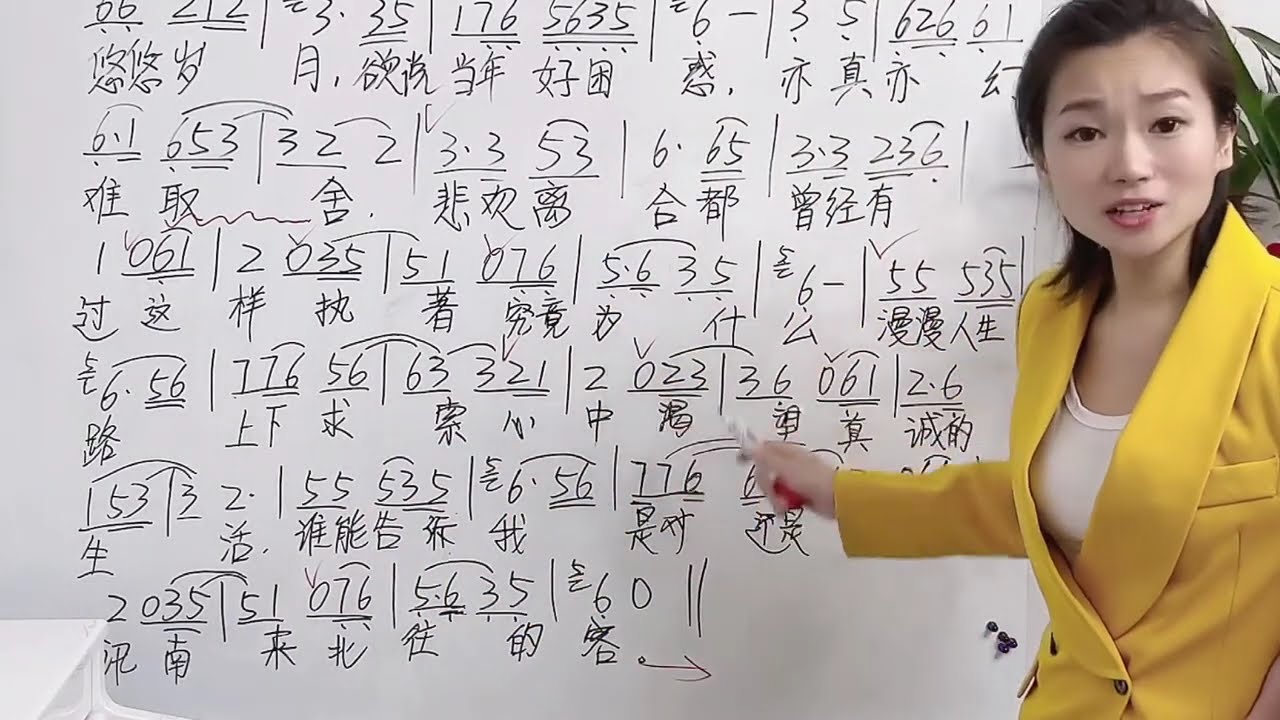 66 212 | 3· 35 | 176 5635 | 6 — | 3 5 | 626 61
悠悠岁 月，欲说当年 好困 惑，亦真亦 幻
6·1 653 | 3 2 2 | 3·3 53 | 6· 65 | 3·3 236 |
难 取 舍．悲欢离 合都 曾经有
1 061 | 2 035 | 51 076 | 5·6 35 | 6 — | 55 535 |
过 这 样 执 著 究竟 为 什 么 漫漫人生
6·56 | 776 56 | 63 321 | 2 023 | 36 061 | 2·6
路 上下 求 索 心 中 渴 望 真 诚的
153 | 3 2· | 55 535 | 6·56 | 776 6
生 活．谁能告诉 我 是对 还是
2 035 | 51 076 | 5·6 35 | 6 0 ‖
汛 南 来 北 往 的 客．